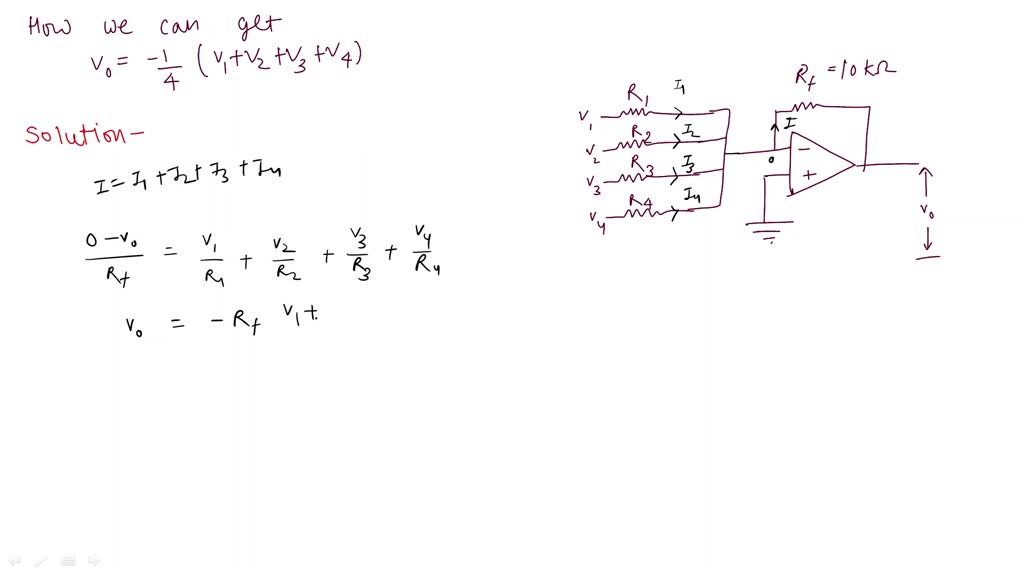 How we can get
V₀ = -1/4 (V₁+V₂+V₃+V₄)
Solution-
I = I₁ + I₂ + I₃ + I₄
0-V₀/Rf = V₁/R₁ + V₂/R₂ + V₃/R₃ + V₄/R₄
V₀ = -Rf V₁+
Rf = 10 kΩ
V₁ R₁ I₁
V₂ R₂ I₂
V₃ R₃ I₃
V₄ R₄ I₄
I
0
-
+
V₀